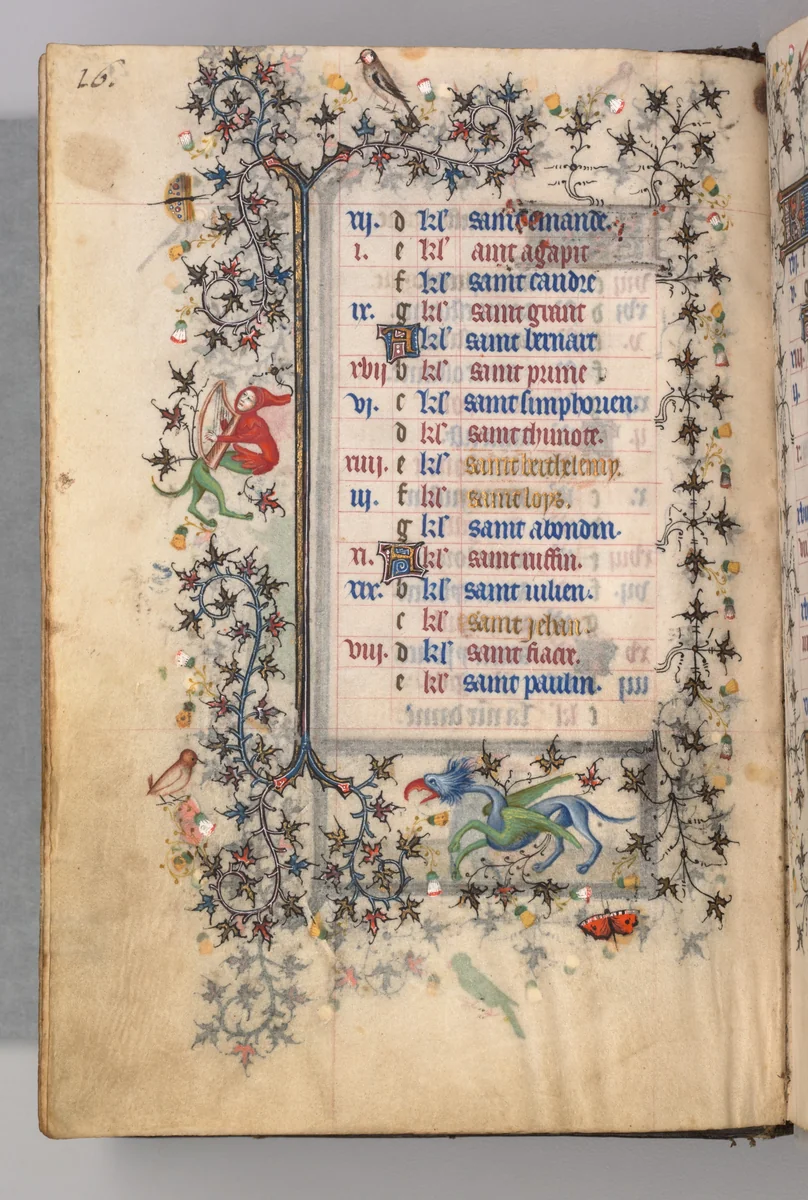 16.
vij. d kl' saint emande.
i. e kl' aint agapit
f kl' saint candre
ix. g kl' saint giunt
A kl' saint bernart
xvij b kl' saint prime
vi. c kl' saint simphorien.
d kl' saint thimote.
xiiii. e kl' saint berthelemy.
iij. f kl' saint loys.
g kl' saint abondin.
xi. A kl' saint ruffin.
xix. b kl' saint iulien.
c kl' saint jehan.
viii. d kl' saint fiacre.
e kl' saint paulin.